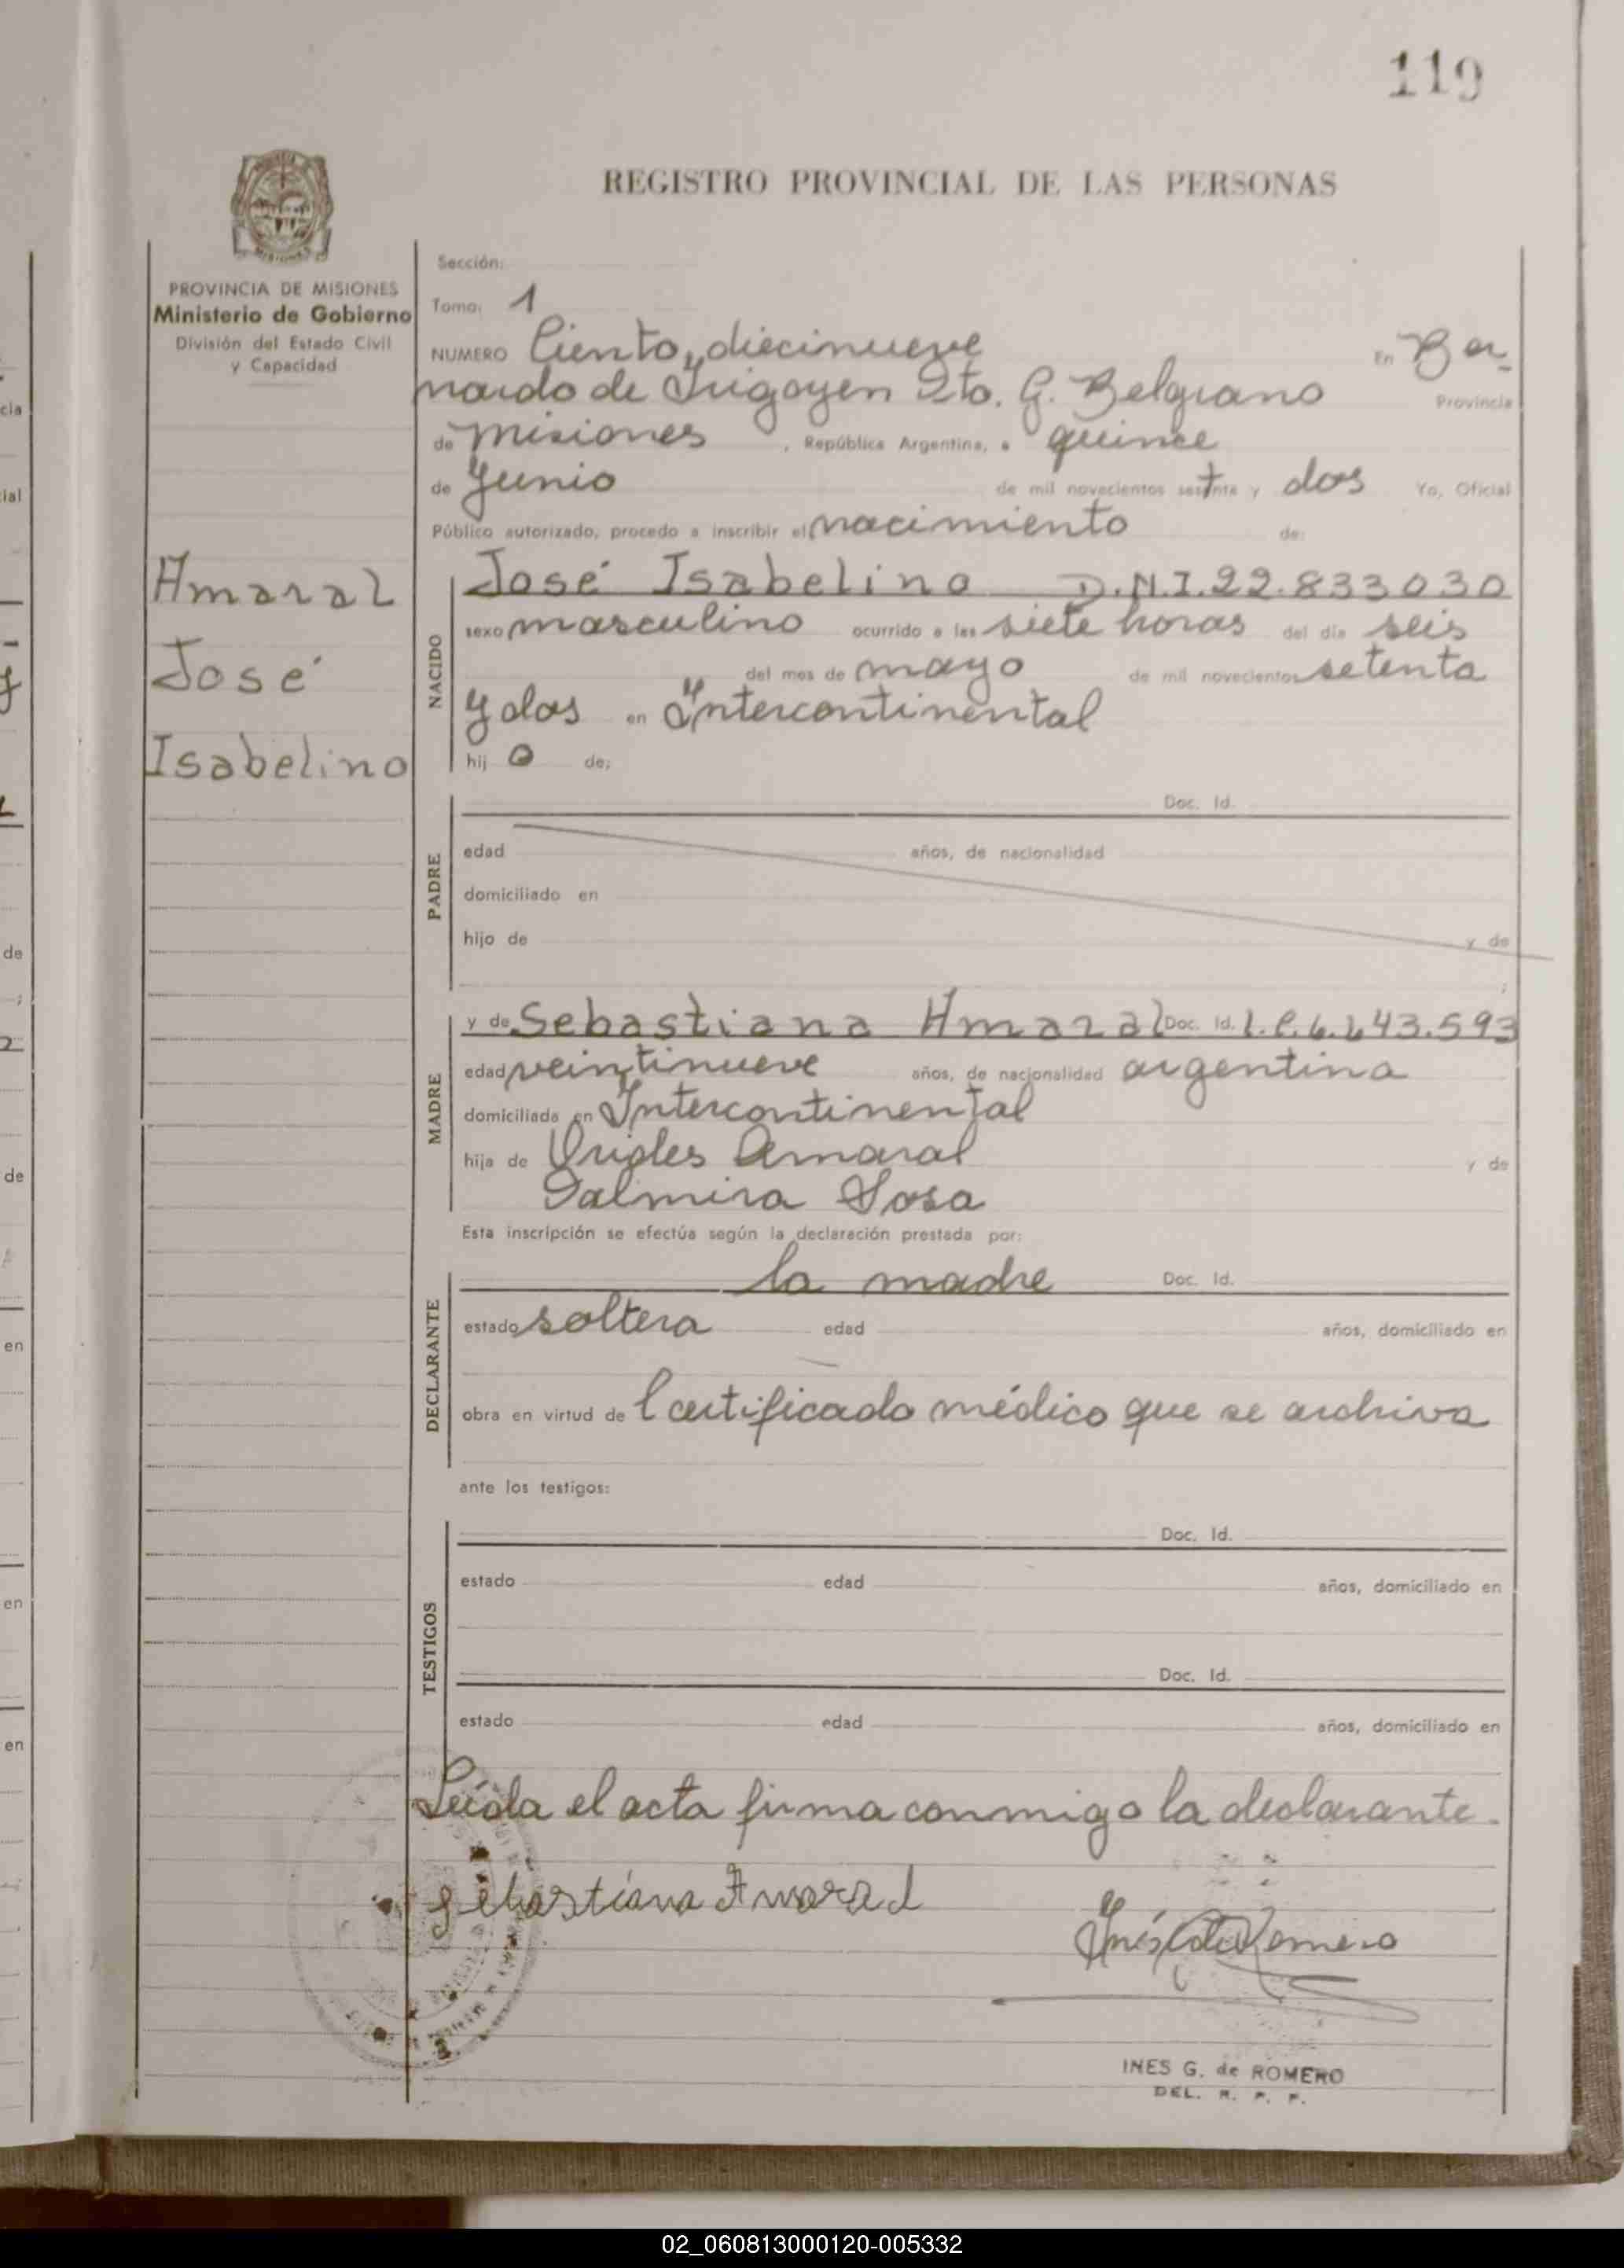 119
REGISTRO PROVINCIAL DE LAS PERSONAS
PROVINCIA DE MISIONES
Ministerio de Gobierno
División del Estado Civil
y Capacidad
Sección:
Tomo: 1
NUMERO Ciento diecinueve En Ber-
nardo de Irigoyen Dto. G. Belgrano Provincia
de Misiones, República Argentina, a quince
de Junio de mil novecientos setenta y dos Yo, Oficial
Público autorizado, procedo a inscribir el nacimiento de:
Amaral
José
Isabelino
NACIDO
José Isabelino D.N.I.22.833030
sexo masculino ocurrido a las siete horas del día seis
del mes de mayo de mil novecientos setenta
y dos en Intercontinental
hij o de:
PADRE
Doc. Id.
edad años, de nacionalidad
domiciliado en
hijo de y de
MADRE
y de Sebastiana Amaral Doc. Id. L.C.6.643.593
edad veintinueve años, de nacionalidad argentina
domiciliada en Intercontinental
hija de Amaral y de
Palmira Sosa
Esta inscripción se efectúa según la declaración prestada por:
DECLARANTE
la madre Doc. Id.
estado soltera edad años, domiciliado en
obra en virtud de l certificado médico que se archiva
ante los testigos:
TESTIGOS
Doc. Id.
estado edad años, domiciliado en
Doc. Id.
estado edad años, domiciliado en
Leída el acta firma conmigo la declarante.
Sebastiana Amaral
Inés G. de Romero
INES G. de ROMERO
DEL. R. P. P.
02_060813000120-005332